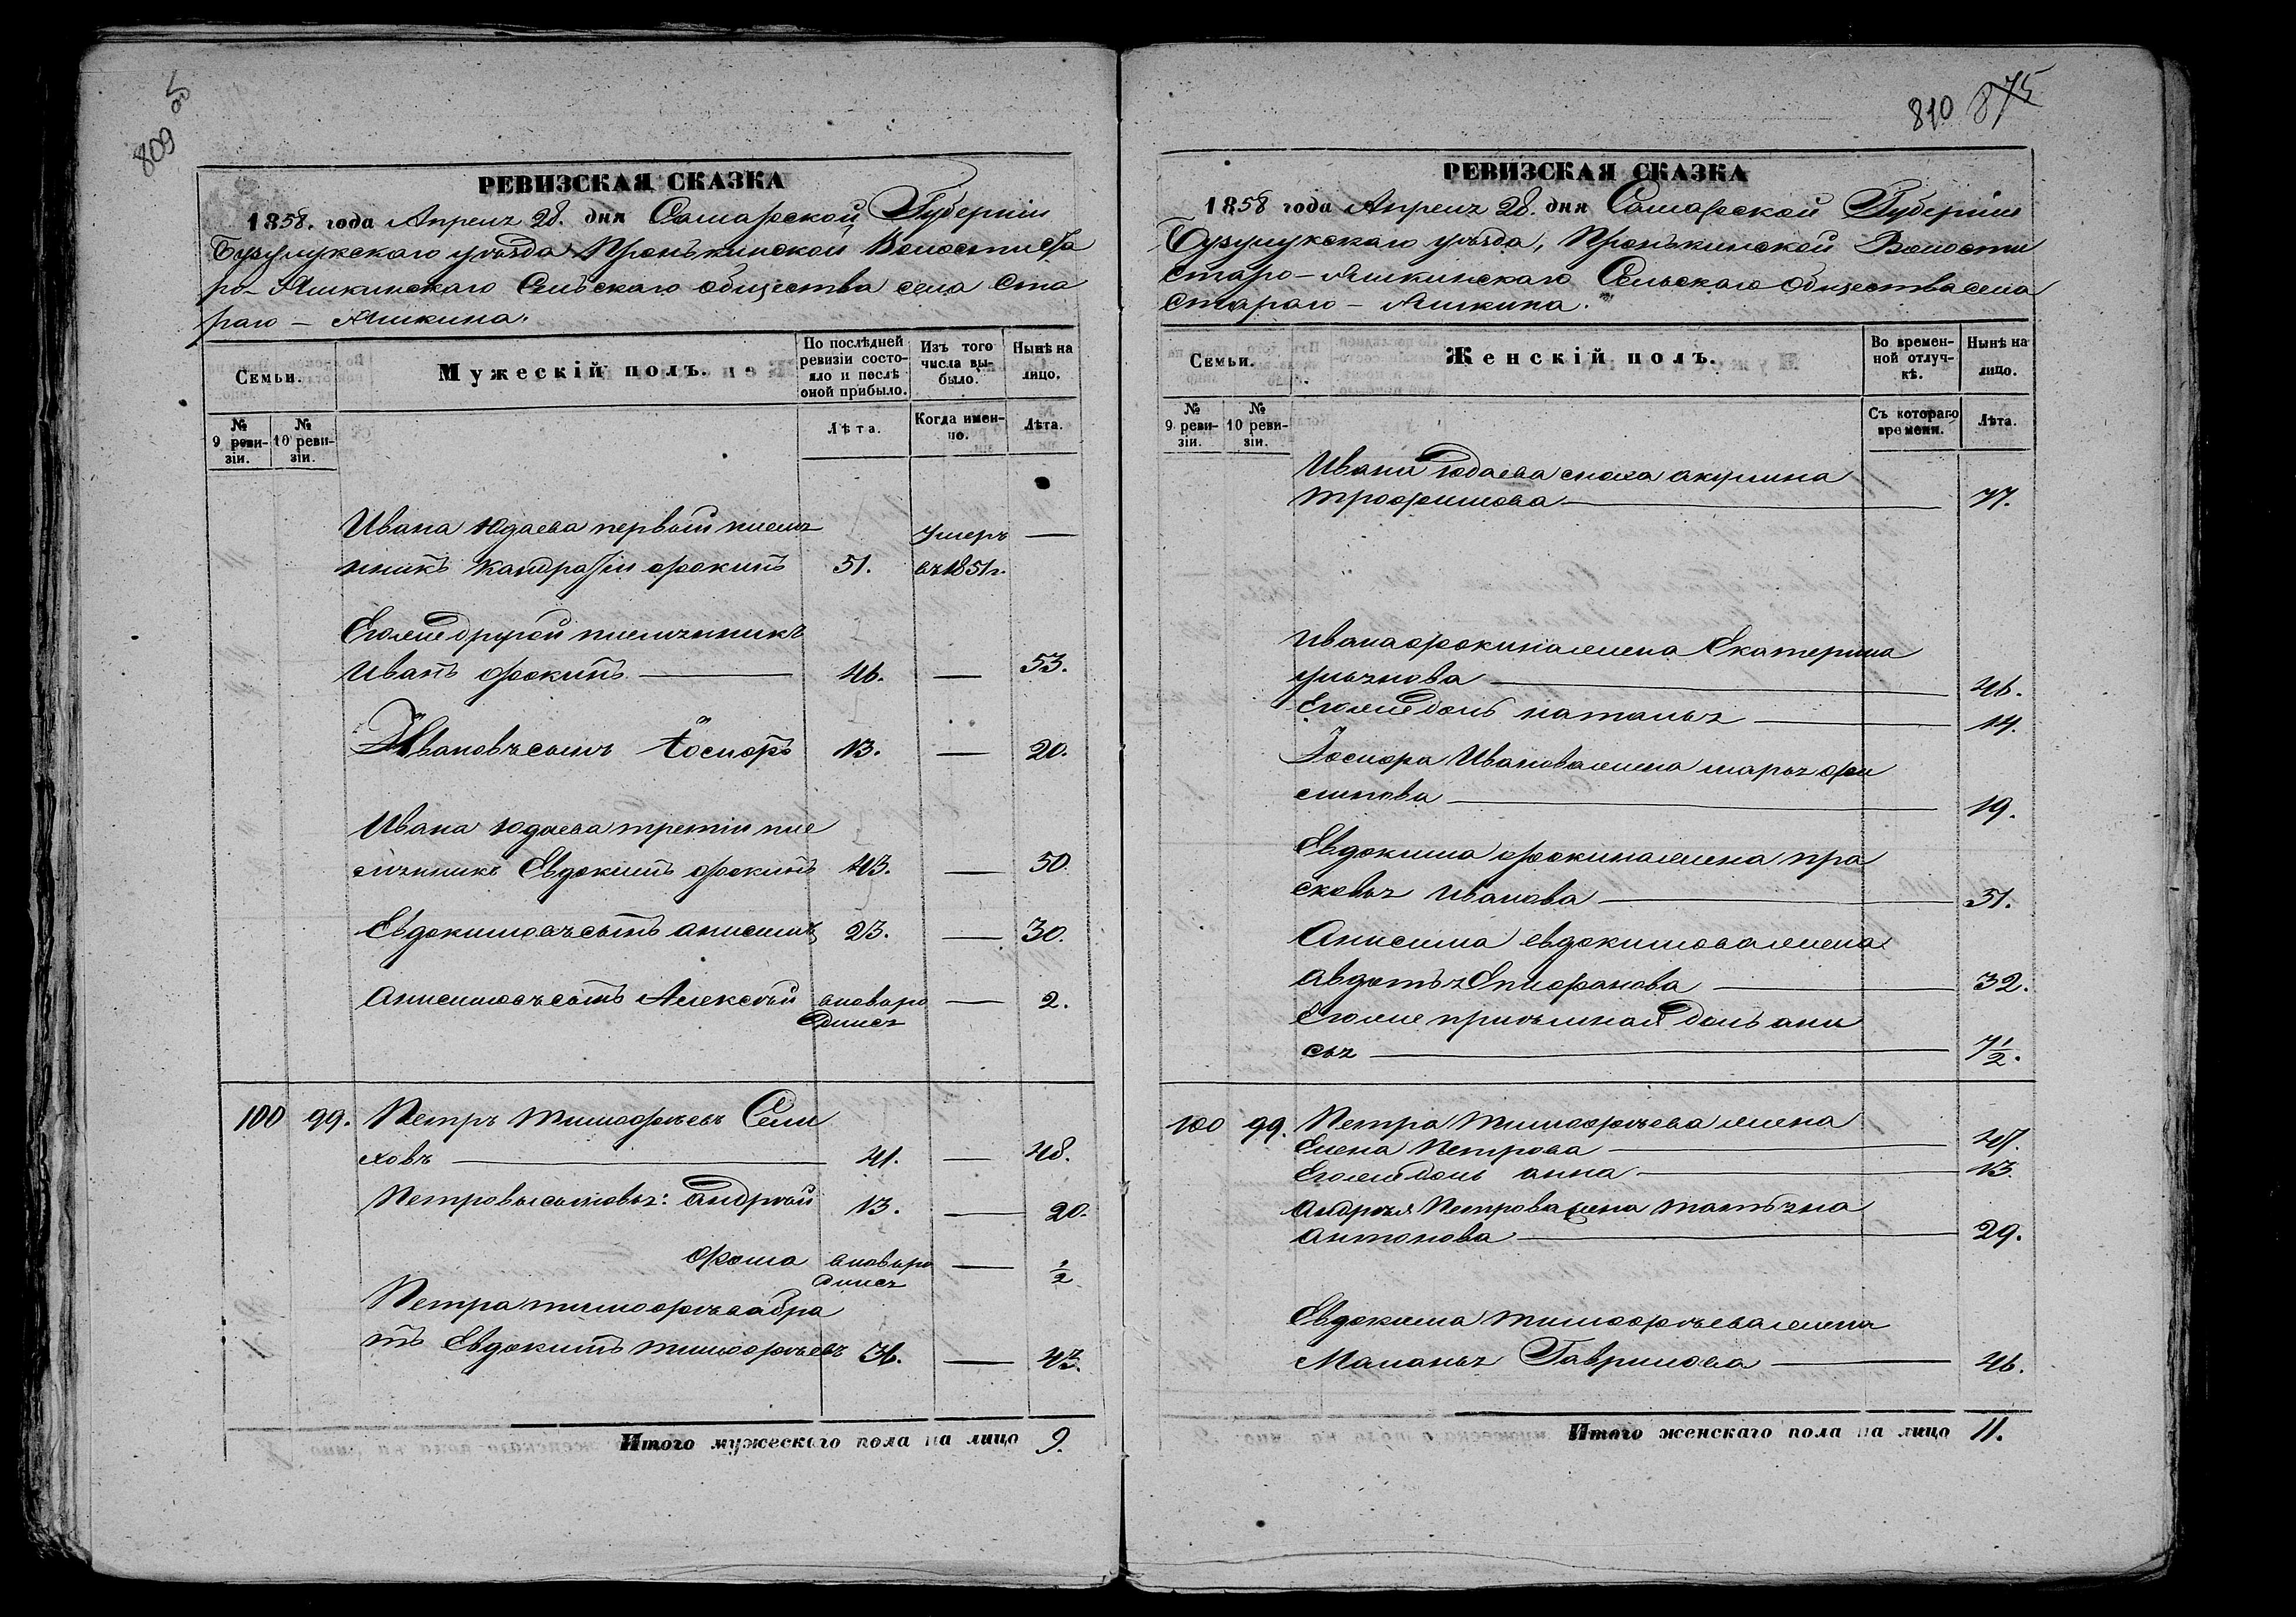 809
810 875
РЕВИЗСКАЯ СКАЗКА
1858. года Апреля 28. дня Самарской Губернiи
Бузулукскаго уѣзда Пронькинской Волости Ста
ро-Ашкинскаго Сельскаго общества села Ста
раго - Ашкина.
Семьи.
Мужескiй полъ.
По послѣдней ревизiи состо-
яло и послѣ оной прибыло.
Изъ того числа вы-
было.
Нынѣ на лицо.
№ 9 реви-
зiи.
№ 10 реви-
зiи.
Лѣта.
Когда имен-
но.
Лѣта.
Ивана Юдаева первый племя умеръ —
нникъ Кандратiй фокинъ 51. въ 1851 г.
Его же другой племянникъ
Иванъ фокинъ — 46. — 53.
Ивановъ сынъ 13. — 20.
Ивана Юдаева третiй пле
мянникъ Евдокимъ фокинъ 43. — 50.
Евдокимовъ сынъ анисимъ 23. — 30.
Анисимовъ сынъ Алексѣй вновьро — 2.
дился
100 99. Петръ тимофѣевъ Сели
ховъ — 41. — 48.
Петровы сыновья: андрѣй 13. — 20.
фома вновьро — 1/2
дился
Петра тимофѣева бра
тъ Евдокимъ тимофѣевъ 36. — 43.
Итого мужескаго пола на лицо 9.
РЕВИЗСКАЯ СКАЗКА
1858 года Апреля 28. дня Самарской Губернiи
Бузулукскаго уѣзда, Пронькинской Волости
Старо-Ашкинскаго Сельскаго общества села
Стараго - Ашкина.
Семьи.
Женскiй полъ.
Во времен-
ной отлуч-
кѣ.
Нынѣ на лицо.
№ 9 реви-
зiи.
№ 10 реви-
зiи.
Съ котораго времени.
Лѣта.
Ивана Юдаева сноха акулина
трофимова — 77.
Ивана фокина жена Екатерина
— 46.
Его же дочь наталья — 14.
Ивановажена марья фи
липова — 19.
Евдокима фокина жена пра
сковья Иванова — 51.
Анисима евдокимова жена
авдотья Епифанова — 32.
Его же прiемная дочь ани
сья — 7 1/2.
100 99. Петра тимофѣева жена
Елена Петрова — 47.
Его же дочь анна — 13.
андрѣя Петрова жена татьяна
антонова — 29.
Евдокима тимофѣева жена
Маланья Гаврилова — 46.
Итого женскаго пола на лицо 11.